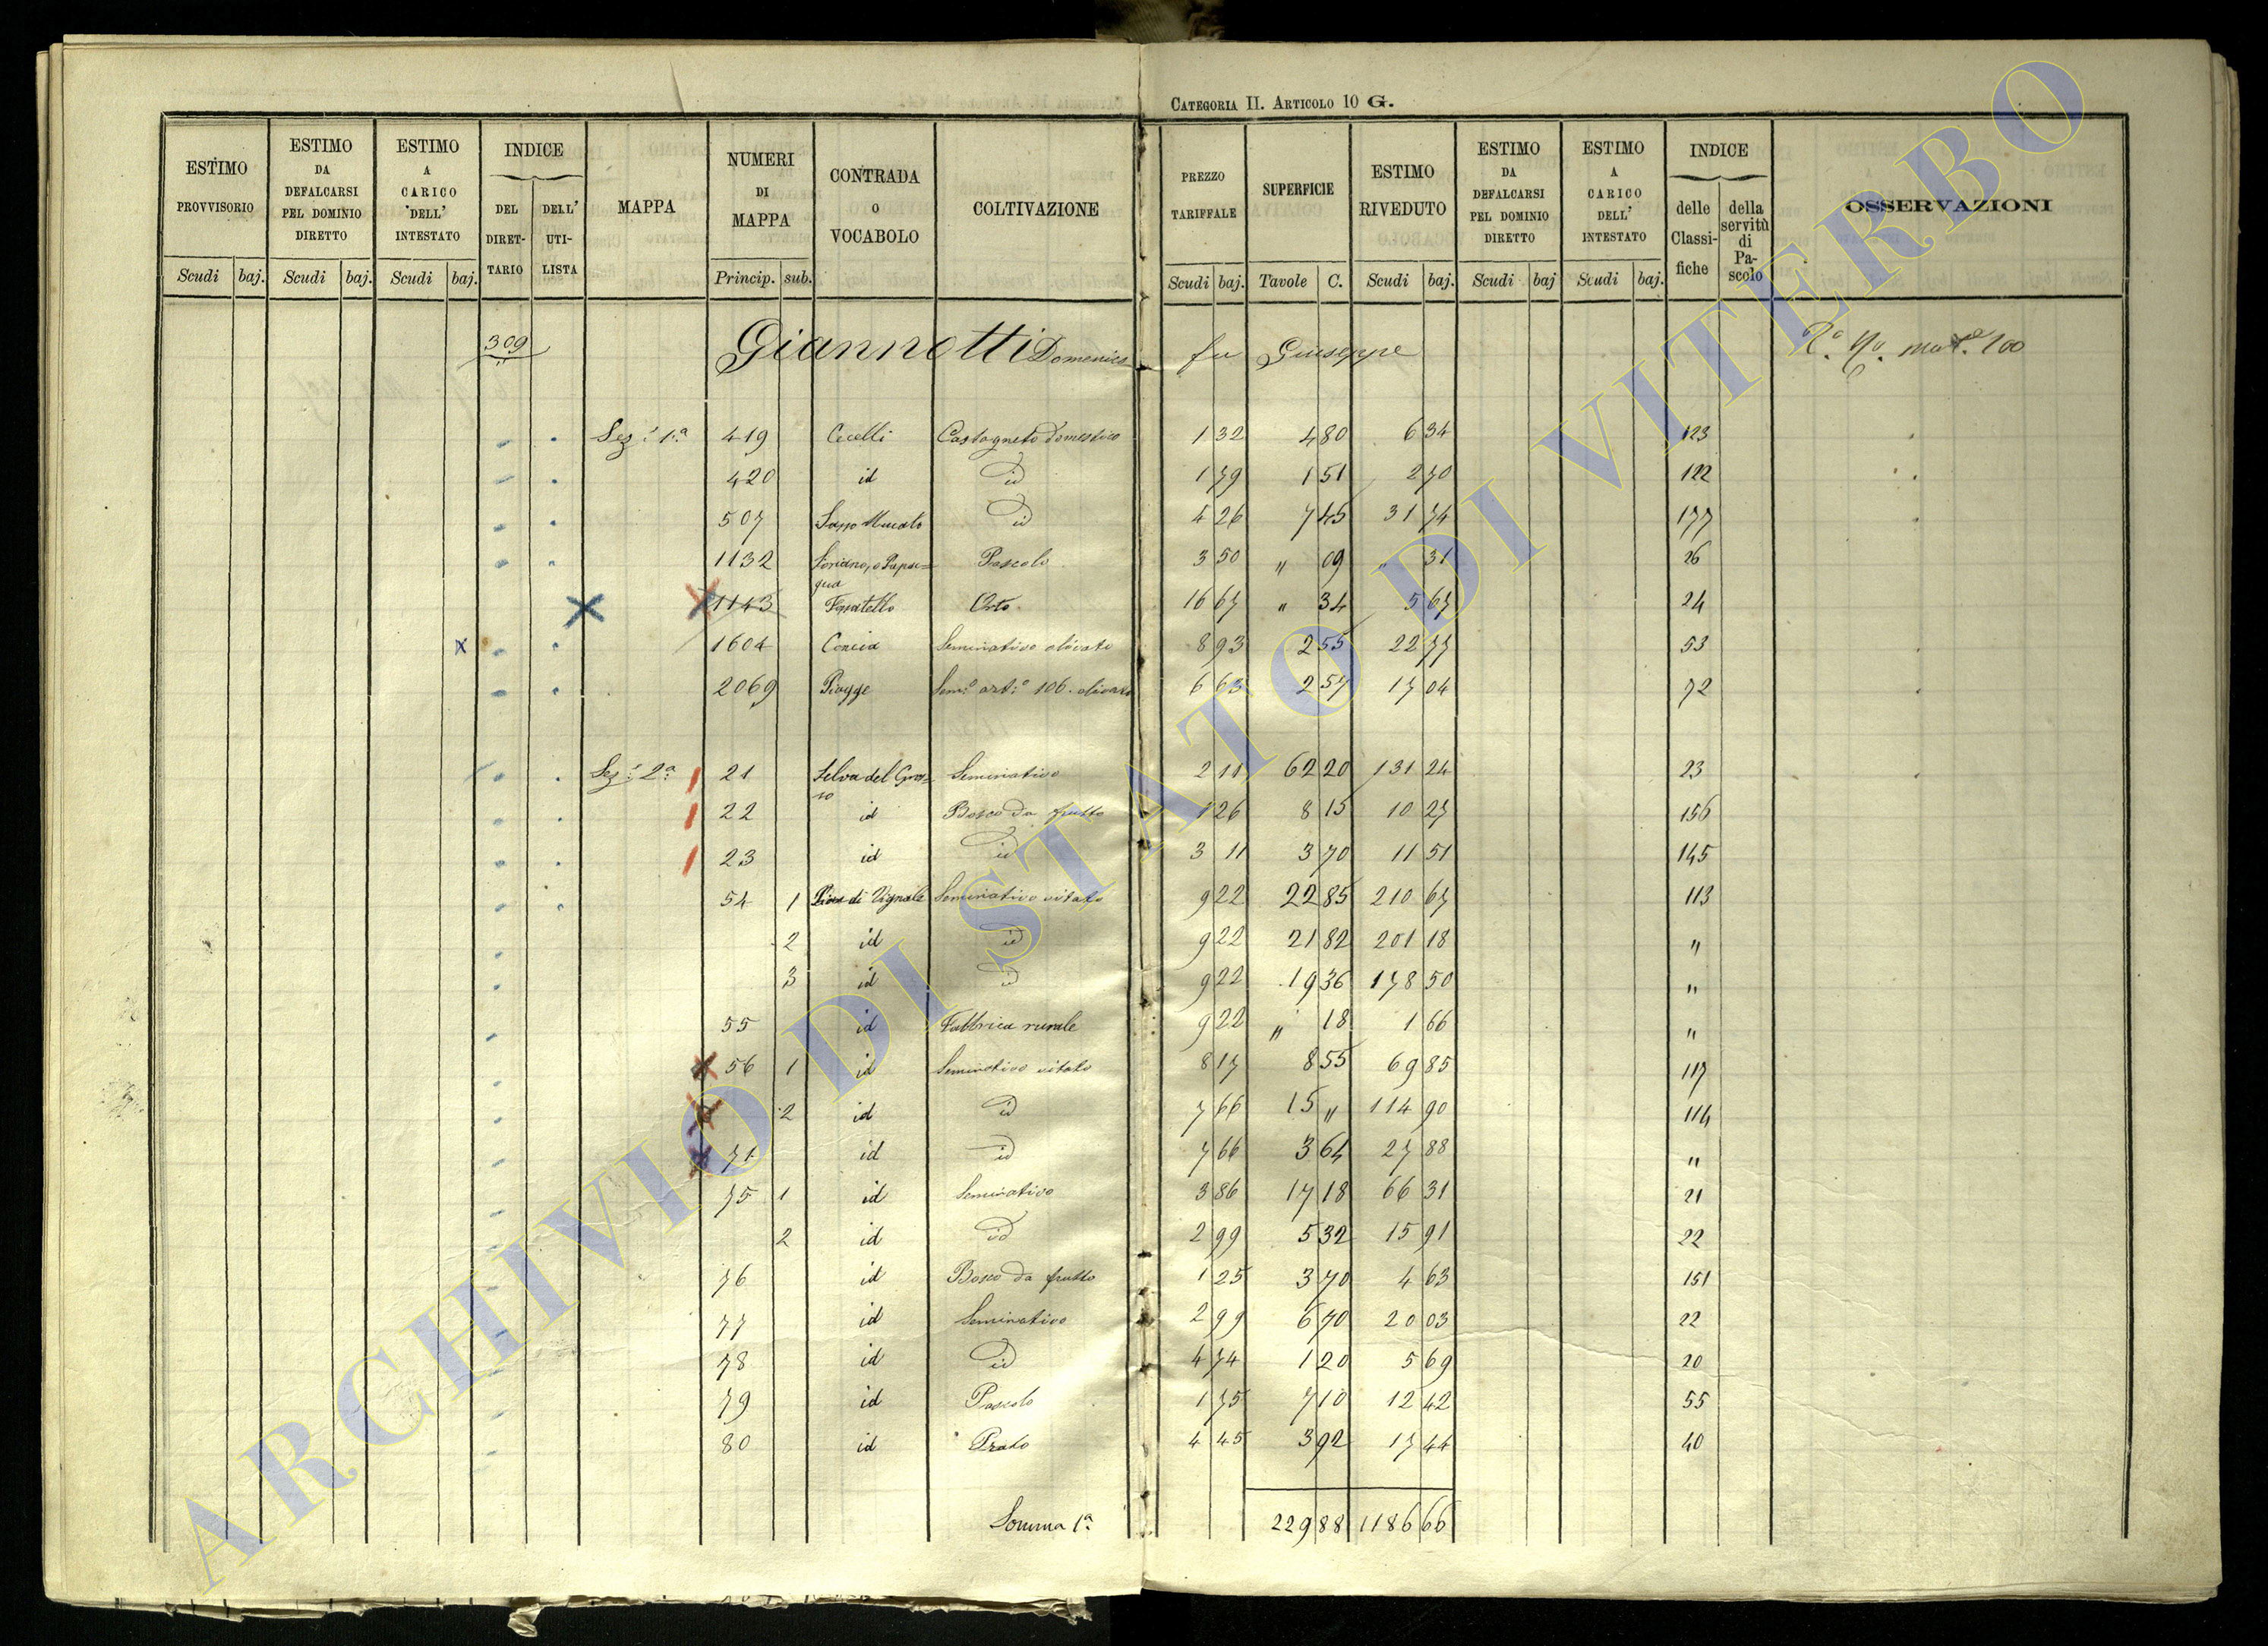 CATEGORIA II. ARTICOLO 10 G.
ESTIMO PROVVISORIO | ESTIMO DA DEFALCARSI PEL DOMINIO DIRETTO | ESTIMO A CARICO DELL' INTESTATO | INDICE | MAPPA | NUMERI DI MAPPA | CONTRADA O VOCABOLO | COLTIVAZIONE | PREZZO TARIFFALE | SUPERFICIE | ESTIMO RIVEDUTO | ESTIMO DA DEFALCARSI PEL DOMINIO DIRETTO | ESTIMO A CARICO DELL' INTESTATO | INDICE | OSSERVAZIONI
DEL DIRET-TARIO | DELL' UTI-LISTA | delle Classi-fiche | della servitù di Pa-scolo
Scudi | baj. | Scudi | baj. | Scudi | baj. | Princip. | sub. | Scudi | baj. | Tavole | C. | Scudi | baj. | Scudi | baj | Scudi | baj.
309 Giannotti Domenico fu Giuseppe 100
Sez. 1ª 419 Cecelli Castagneto domestico 1 32 4 80 6 34 123
420 id id 1 79 1 51 2 70 122
507 Sasso id 4 26 7 45 31 74 177
1132 Soriano, o Papac=qua Pascolo 3 50 " 09 " 31 26
1143 Fossatello Orto 16 67 " 34 5 67 24
1604 Concia Seminativo olivato 8 93 2 55 22 77 53
2069 Piagge Sem.º art.º 106. olivato 6 63 2 57 17 04 72
Sez. 2ª 21 Selva del Gros=so Seminativo 2 11 62 20 131 24 23
22 id Bosco da frutto 1 26 8 15 10 27 156
23 id id 3 11 3 70 11 51 145
54 1 di Vignale Seminativo vitato 9 22 22 85 210 67 113
2 id id 9 22 21 82 201 18 "
3 id id 9 22 19 36 178 50 "
55 id Fabbrica rurale 9 22 " 18 1 66 "
56 1 id Seminativo vitato 8 17 8 55 69 85 117
2 id id 7 66 15 " 114 90 114
71 id id 7 66 3 64 27 88 "
75 1 id Seminativo 3 86 17 18 66 31 21
2 id id 2 99 5 32 15 91 22
76 id Bosco da frutto 1 25 3 70 4 63 151
77 id Seminativo 2 99 6 70 20 03 22
78 id id 4 74 1 20 5 69 20
79 id Pascolo 1 75 7 10 12 42 55
80 id Prato 4 45 3 92 17 44 40
Somma 1ª 229 88 1186 66
ARCHIVIO DI STATO DI VITERBO